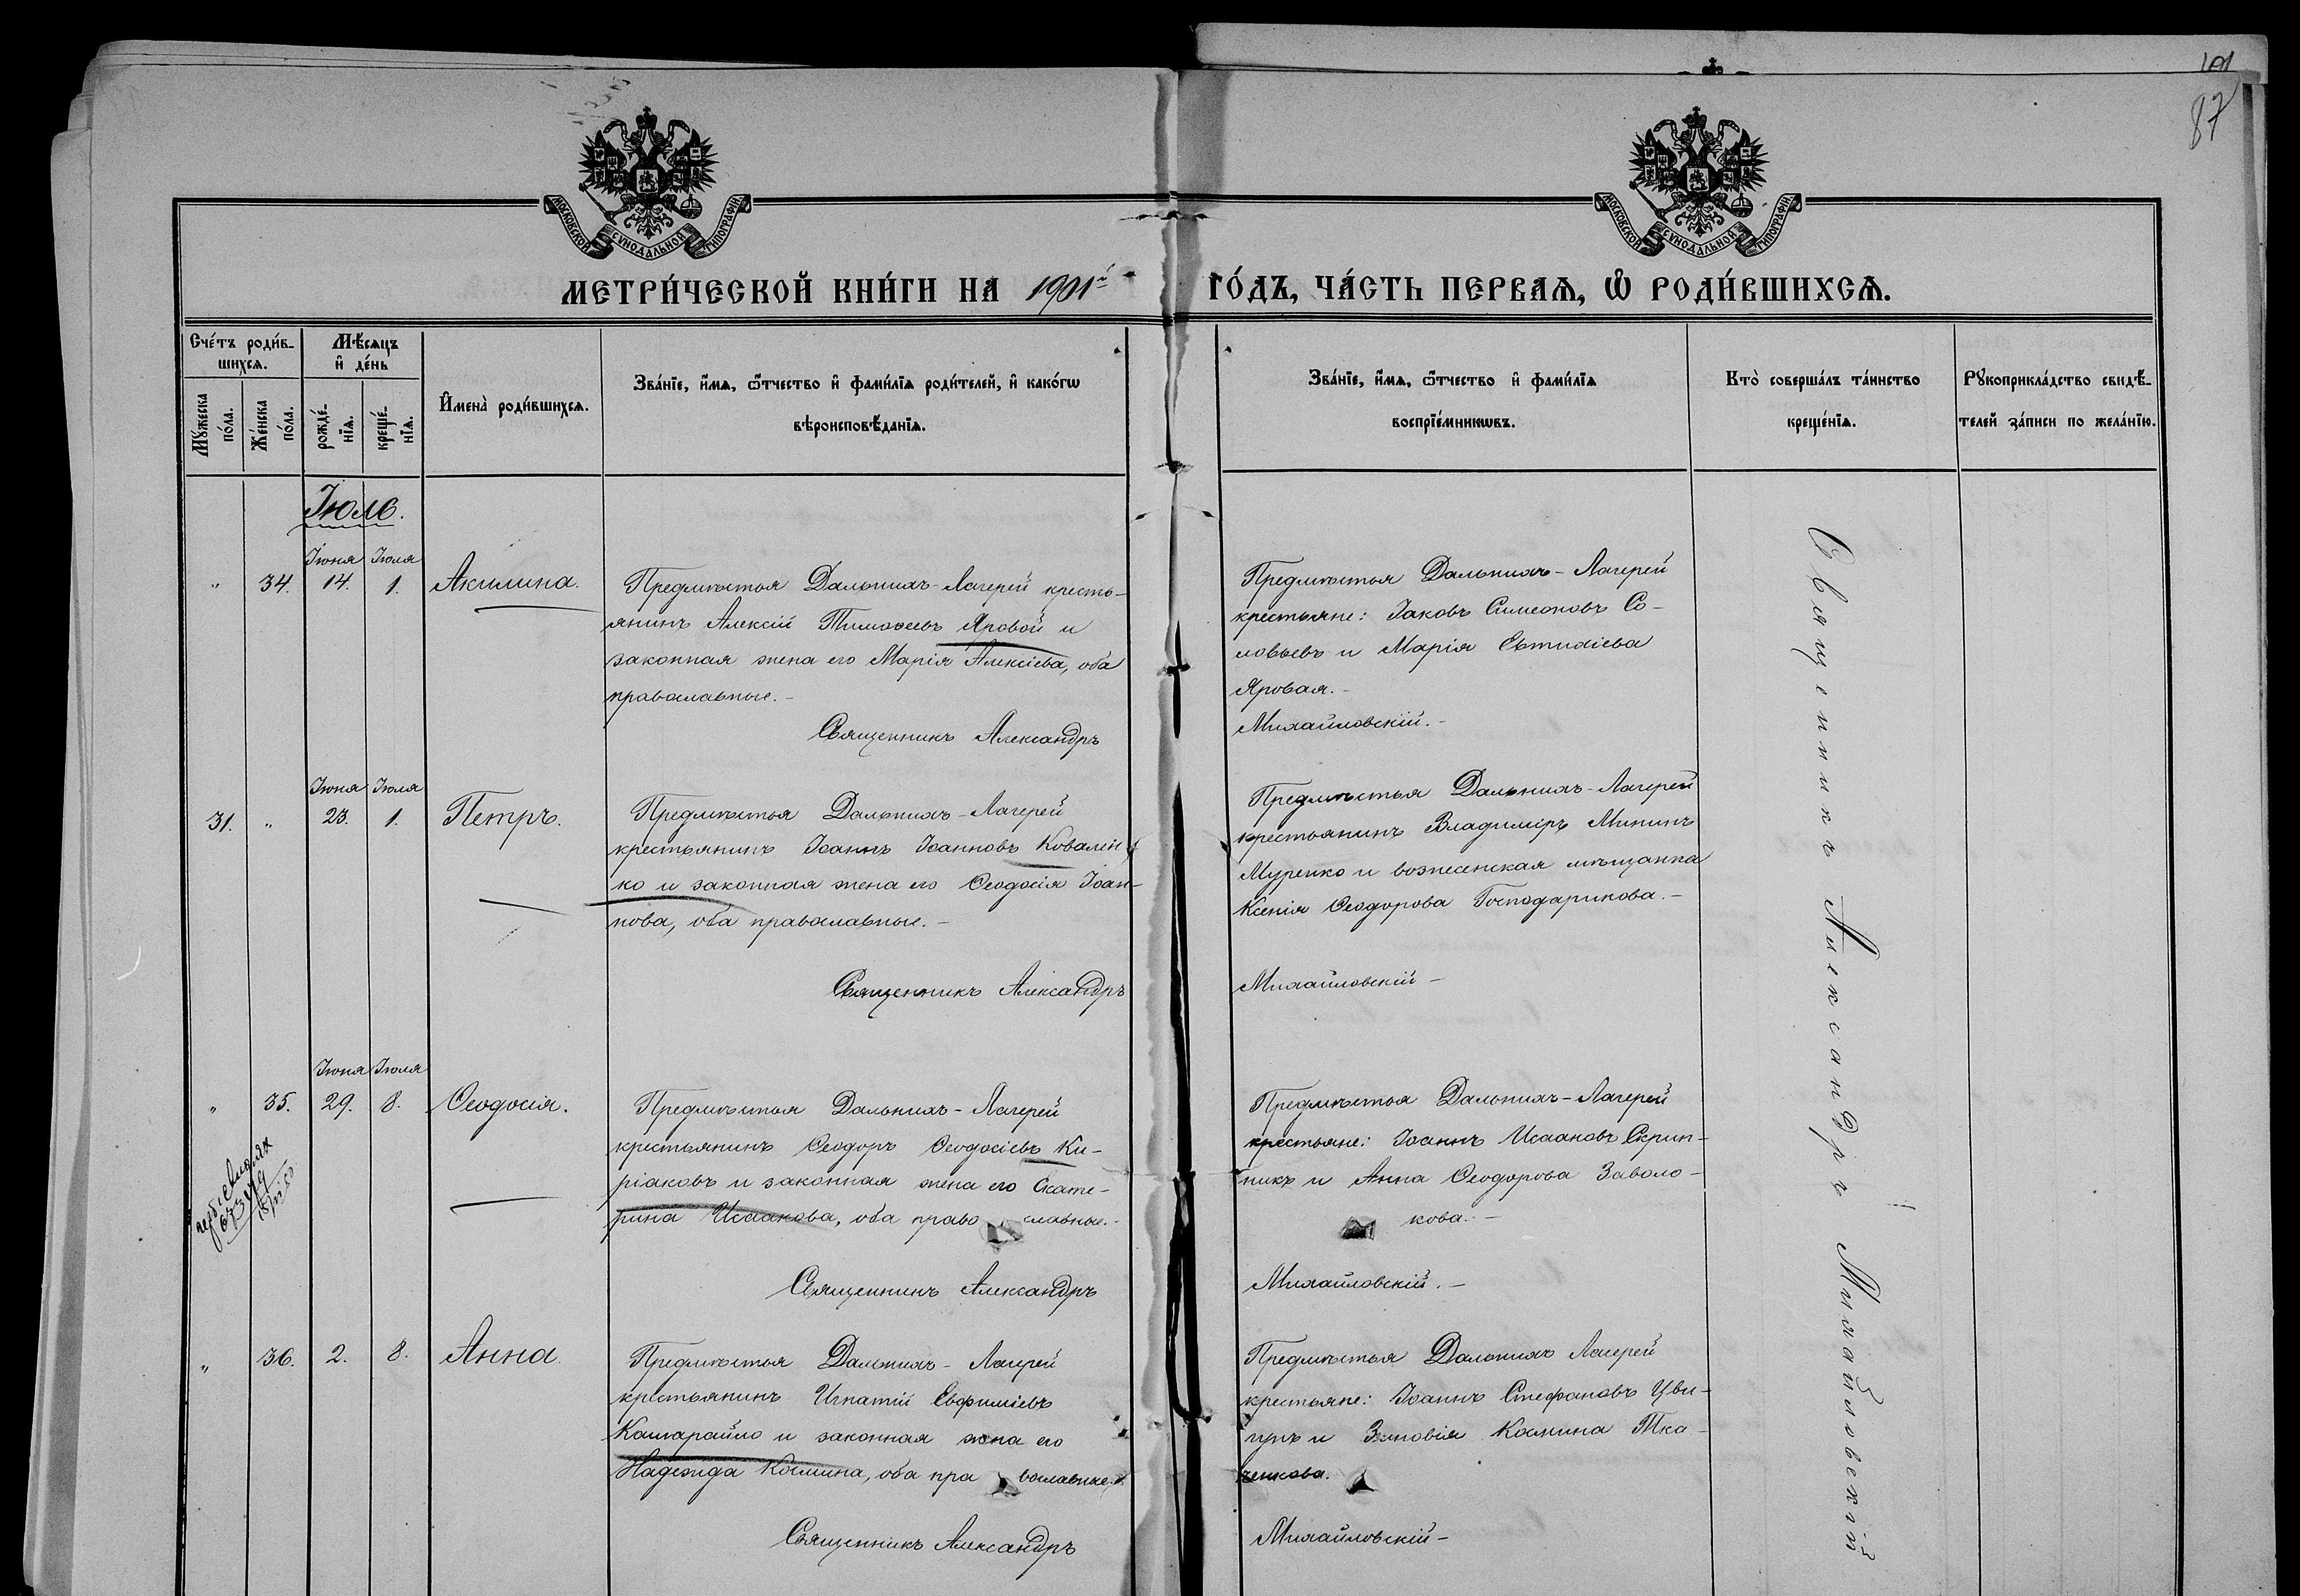 101
87
МОСКОВСКОЙ СѴНОДАЛЬНОЙ ТИПОГРАФІИ
МОСКОВСКОЙ СѴНОДАЛЬНОЙ ТИПОГРАФІИ
МЕТРИ́ЧЕСКОЙ КНИ́ГИ НА 1901й
ГО́ДЪ, ЧА́СТЬ ПЕРВАѦ, Ѡ РОДИ́ВШИХСѦ.
Сче́тъ роди́в-
шихсѧ.
Мꙋ́жеска по́ла.
Же́нска по́ла.
Мѣ́сѧцъ
и҆ де́нь
рожде́-
нїѧ.
креще́-
нїѧ.
И҆мена̀ роди́вшихсѧ.
Зва́нїе, и҆́мѧ, ѻ҆́тчество и҆ фами́лїѧ роди́телей, и҆ како́гѡ
вѣроисповѣ́данїѧ.
Зва́нїе, и҆́мѧ, ѻ҆́тчество и҆ фами́лїѧ
воспрїе́мникѡвъ.
Кто̀ соверша́лъ та́инство
креще́нїѧ.
Рꙋкоприкла́дство свидѣ́-
телей за́писи по жела́нїю.
Іюль.
Іюня Іюля
" 34. 14. 1. Акилина.
Предмѣстья Дальнихъ-Лагерей кресть-
янинъ Алексій Тимоѳеевъ Яровой и
законная жена его Марія Алексіева, оба
православные.-
Священникъ Александръ
Предмѣстья Дальнихъ-Лагерей
крестьяне: Іаковъ Симеоновъ Со-
ловьевъ и Марія Евтихіева
Яровая.-
Михайловскій.-
Іюня Іюля
31. " 23. 1. Петръ.
Предмѣстья Дальнихъ-Лагерей
крестьянинъ Іоаннъ Іоанновъ Кovален-
ко и законная жена его Ѳеодосія Іоан-
нова, оба православные.-
Священникъ Александръ
Предмѣстья Дальнихъ-Лагерей
крестьянинъ Владиміръ Мининъ
Муренко и вознесенская мѣщанка
Ксенія Ѳеодорова Господарикова.-
Михайловскій-
Іюня Іюля
" 35. 29. 8. Ѳеодосія.
Предмѣстья Дальнихъ-Лагерей
крестьянинъ Ѳеодоръ Ѳеодосіевъ Ки-
ріаковъ и законная жена его Екате-
рина Исаакова, оба право славные.-
Священникъ Александръ
Предмѣстья Дальнихъ-Лагерей
крестьяне: Іоаннъ Исааковъ Скрип-
никъ и Анна Ѳеодорова Заволо-
кова.-
Михайловскій.-
" 36. 2. 8. Анна.
Предмѣстья Дальнихъ-Лагерей
крестьянинъ Игнатій Евфиміевъ
Кашарайло и законная жена его
Надежда Космина, оба пра вославные.
Священникъ Александръ
Предмѣстья Дальнихъ Лагерей
крестьяне: Іоаннъ Стефановъ Цви-
гунъ и Зиновія Космина Тка-
ченкова.
Михайловскій-
Священникъ Александръ Михайловскій